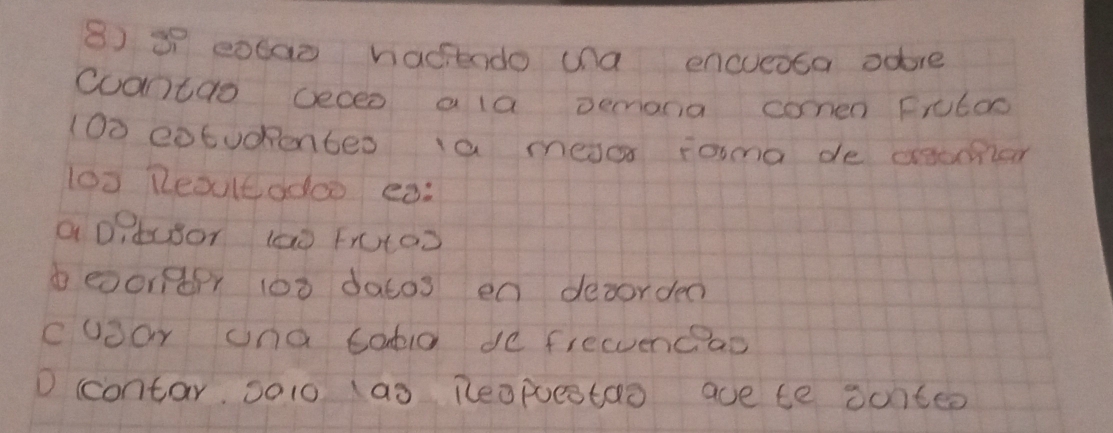 8) Si estas haciendo una encuesta sobre
cuantas veces a la semana comen Frutas
los estudiantes la mejor forma de organizar
los Resultados es:
a Dibujar las Frutas
b escribir los datos en desorden
c usar una tabla de frecuencias
D contar. solo las Respuestas que te